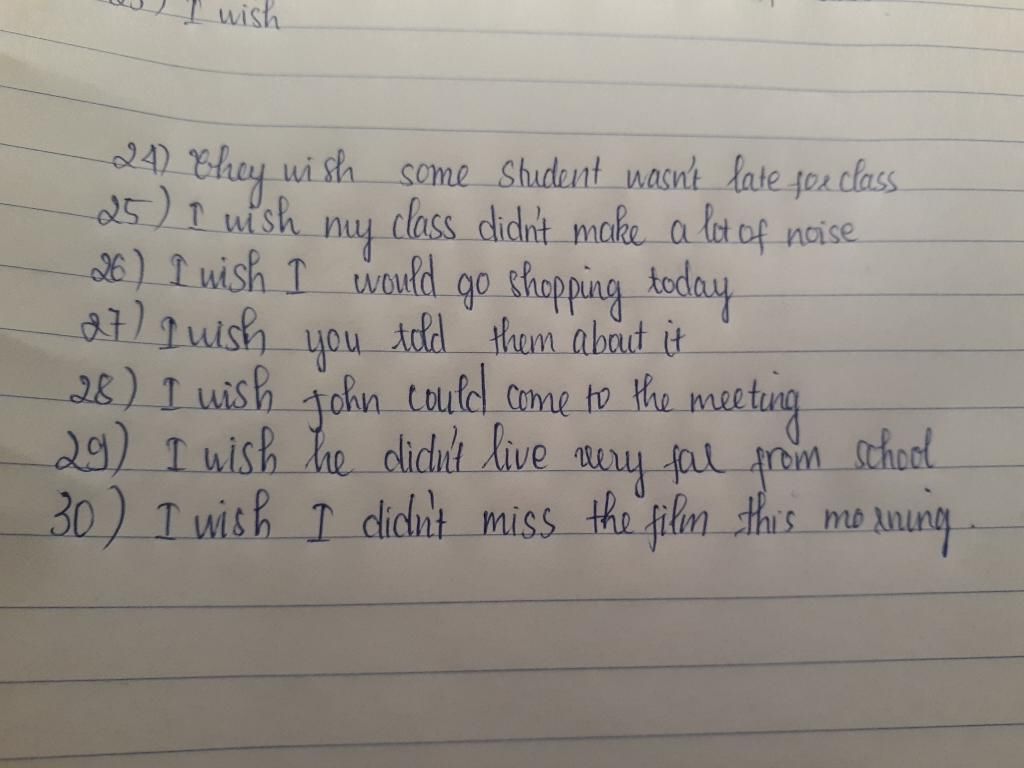 23) I wish
24) They wish some student wasn't late for class
25) I wish my class didn't make a lot of noise
26) I wish I would go shopping today
27) I wish you told them about it
28) I wish john could come to the meeting
29) I wish he didn't live very far from school
30) I wish I didn't miss the film this morning.